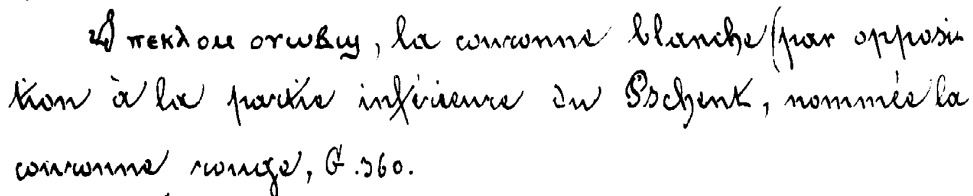 ⲡⲉⲕⲗⲟⲙ ⲟⲩⲱⲃϣ, la couronne blanche (par opposi-
tion à la partie inférieure du Pschent, nommée la
couronne rouge, G. 360.